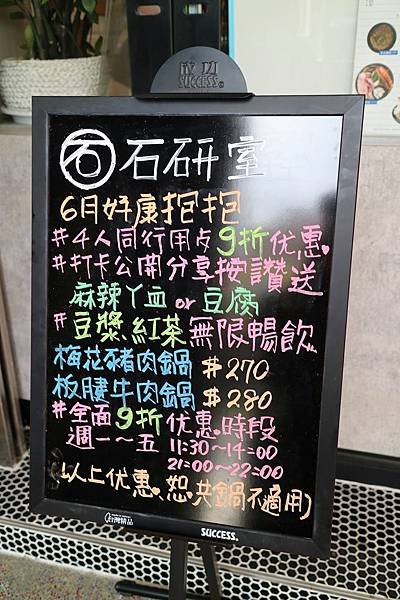 成功
SUCCESS
石 石研室
6月好康抱抱
#4人同行用歺9折优惠
#打卡公開分享按讚送
麻辣丫血or豆腐
#豆漿紅茶無限暢飲
梅花豬肉鍋 #270
板腱牛肉鍋 #280
#全面9折优惠時段
週一~五 11:30~14:00
21:00~22:00
(以上优惠.恕共鍋不適用)
台灣精品 SUCCESS.